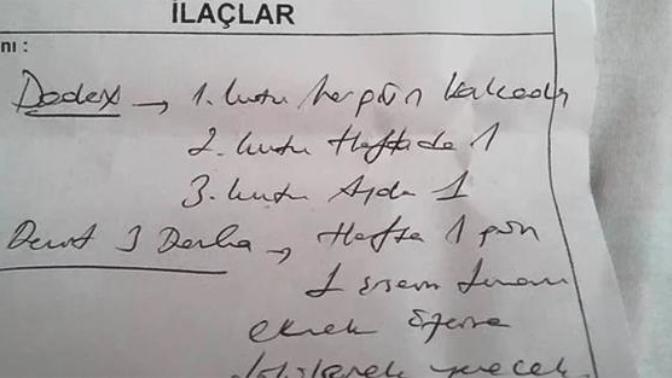 İLAÇLAR
nı :
Dodex → 1. kutu hergün kalçadan
2. kutu Haftada 1
3. kutu Ayda 1
Devit 3 Damla → Hafta 1 gün
1 tamamı
ekmek üzerine
dökülerek yenecek